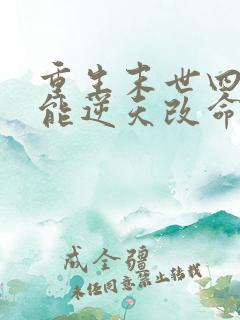 重生末世四
能逆天改命
成全疆
未经同意禁止转载